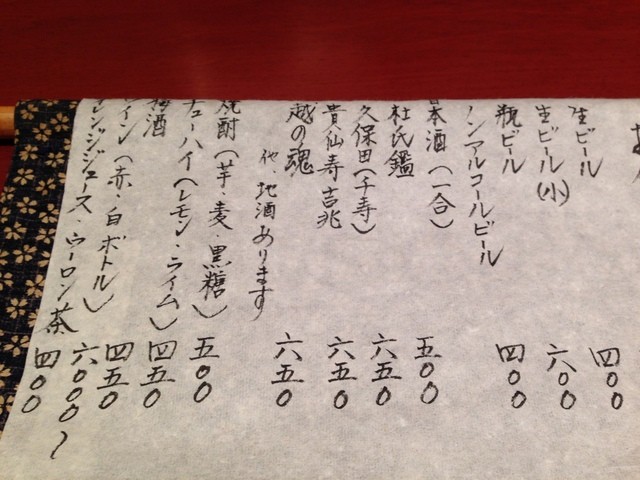 生ビール
生ビール(小) 四〇〇
瓶ビール 六〇〇
ノンアルコールビール 四〇〇
日本酒(一合)
杜氏鑑 五〇〇
久保田(千寿) 六五〇
貴仙寿吉兆 六五〇
越の魂 六五〇
他、地酒あります
焼酎(芋・麦・黒糖) 五〇〇
チューハイ(レモン・ライム) 四五〇
梅酒 四五〇
ワイン(赤・白ボトル) 六〇〇〇〜
オレンジジュース・ウーロン茶 四〇〇